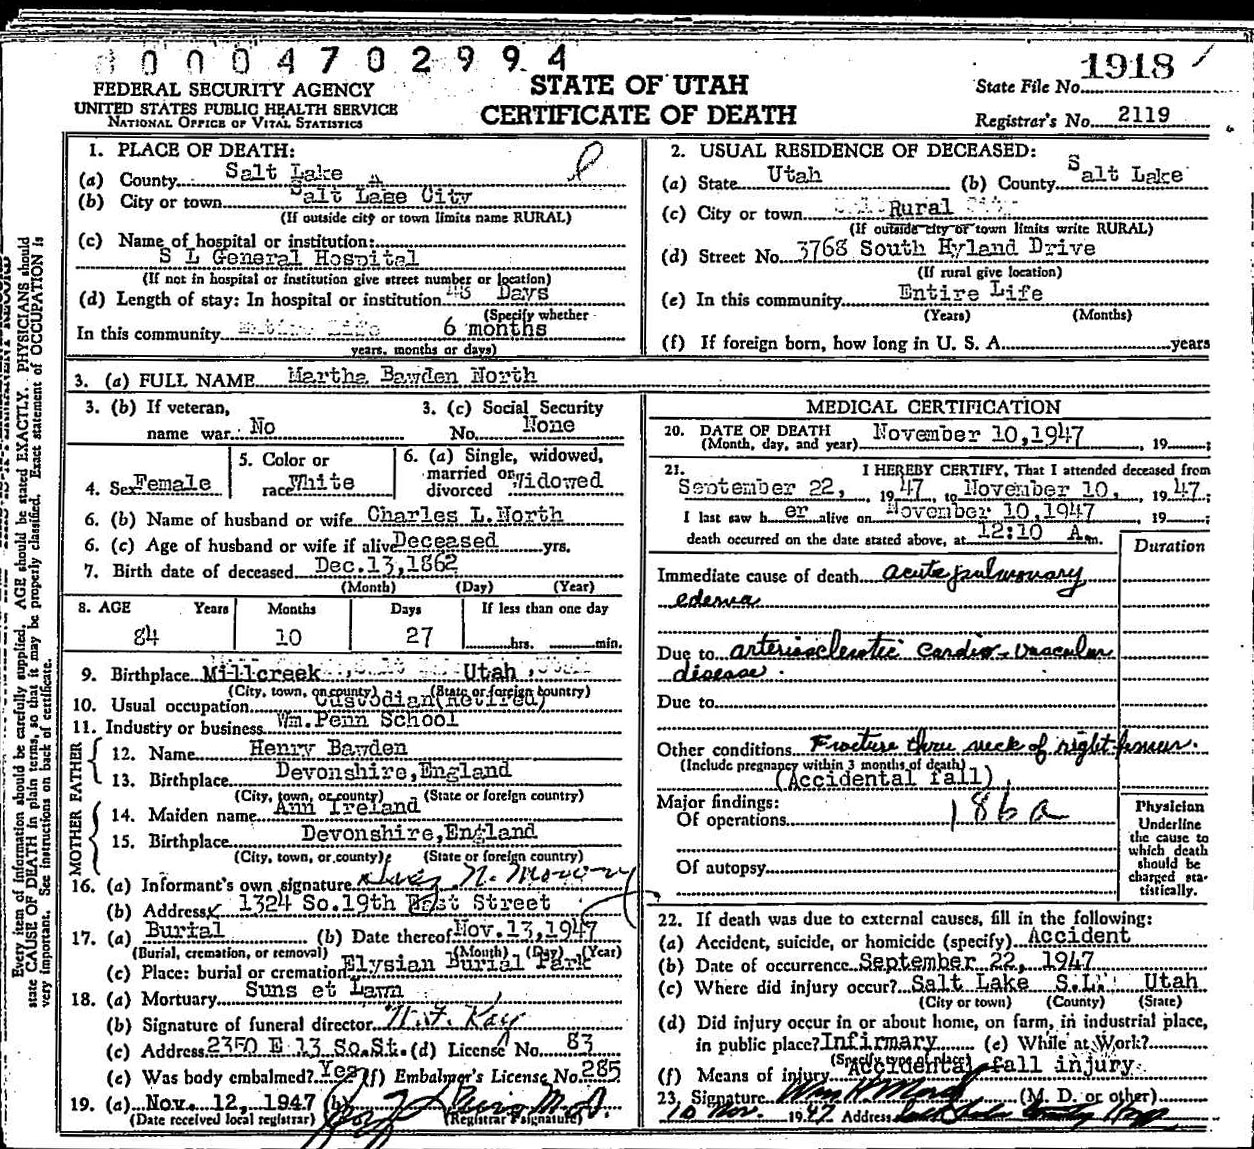 0004702994
FEDERAL SECURITY AGENCY
UNITED STATES PUBLIC HEALTH SERVICE
NATIONAL OFFICE OF VITAL STATISTICS
STATE OF UTAH
CERTIFICATE OF DEATH
State File No. 1918
Registrar's No. 2119
1. PLACE OF DEATH:
(a) County Salt Lake
(b) City or town Salt Lake City
(If outside city or town limits name RURAL)
(c) Name of hospital or institution:
S L General Hospital
(If not in hospital or institution give street number or location)
(d) Length of stay: In hospital or institution Days
(Specify whether
In this community Entire Life 6 months
years, months or days)
2. USUAL RESIDENCE OF DECEASED:
(a) State Utah (b) County Salt Lake
(c) City or town Rural
(If outside city or town limits write RURAL)
(d) Street No. 3768 South Hyland Drive
(If rural give location)
(e) In this community Entire Life
(Years) (Months)
(f) If foreign born, how long in U. S. A. years
3. (a) FULL NAME Martha Bawden North
3. (b) If veteran, name war No
3. (c) Social Security No. None
4. Sex Female
5. Color or race White
6. (a) Single, widowed, married or divorced Widowed
6. (b) Name of husband or wife Charles L. North
6. (c) Age of husband or wife if alive Deceased yrs.
7. Birth date of deceased Dec. 13, 1862
(Month) (Day) (Year)
8. AGE Years Months Days If less than one day
84 10 27 hrs. min.
9. Birthplace Millcreek Utah
(City, town, or county) (State or foreign country)
10. Usual occupation Custodian (Retired)
11. Industry or business Wm. Penn School
FATHER
12. Name Henry Bawden
13. Birthplace Devonshire, England
(City, town, or county) (State or foreign country)
MOTHER
14. Maiden name Ann Ireland
15. Birthplace Devonshire, England
(City, town, or county) (State or foreign country)
16. (a) Informant's own signature
(b) Address 1324 So. 19th East Street
17. (a) Burial (b) Date thereof Nov. 13, 1947
(Burial, cremation, or removal) (Month) (Day) (Year)
(c) Place: burial or cremation Elysian Burial Park
18. (a) Mortuary Suns et Lawn
(b) Signature of funeral director Kay
(c) Address 2350 E 13 So. St. (d) License No. 83
(e) Was body embalmed? Yes (f) Embalmer's License No. 285
19. (a) Nov. 12, 1947 (b)
(Date received local registrar) (Registrar's signature)
MEDICAL CERTIFICATION
20. DATE OF DEATH November 10, 1947, 19 ;
(Month, day, and year)
21. I HEREBY CERTIFY, That I attended deceased from
September 22, 1947, to November 10, 1947;
I last saw her alive on November 10, 1947, 19 ;
death occurred on the date stated above, at 12:10 A.m.
Duration
Immediate cause of death acute pulmonary
edema
Due to arteriosclerotic Cardio-vascular
disease.
Due to
Other conditions Fracture thru neck of right femur.
(Include pregnancy within 3 months of death)
(Accidental fall)
Major findings:
Of operations 186a
Of autopsy
Physician
Underline
the cause to
which death
should be
charged sta-
tistically.
22. If death was due to external causes, fill in the following:
(a) Accident, suicide, or homicide (specify) Accident
(b) Date of occurrence September 22, 1947
(c) Where did injury occur? Salt Lake S.L. Utah
(City or town) (County) (State)
(d) Did injury occur in or about home, on farm, in industrial place,
in public place? Infirmary (e) While at Work?
(Specify type of place)
(f) Means of injury Accidental fall injury.
23. Signature (M. D. or other)
10 Nov. 1947 Address
Every item of information should be carefully supplied. AGE should be stated EXACTLY. PHYSICIANS should
state CAUSE OF DEATH in plain terms, so that it may be properly classified. Exact statement of OCCUPATION is
very important. See instructions on back of certificate.